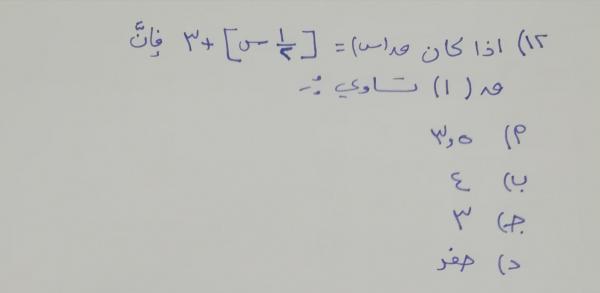 ١٢) اذا كان ق(س) = [ ١/٢ س ] + ٣ فإنَّ
ق(١) تساوي :-
أ) ٣,٥
ب) ٤
ج) ٣
د) صفر